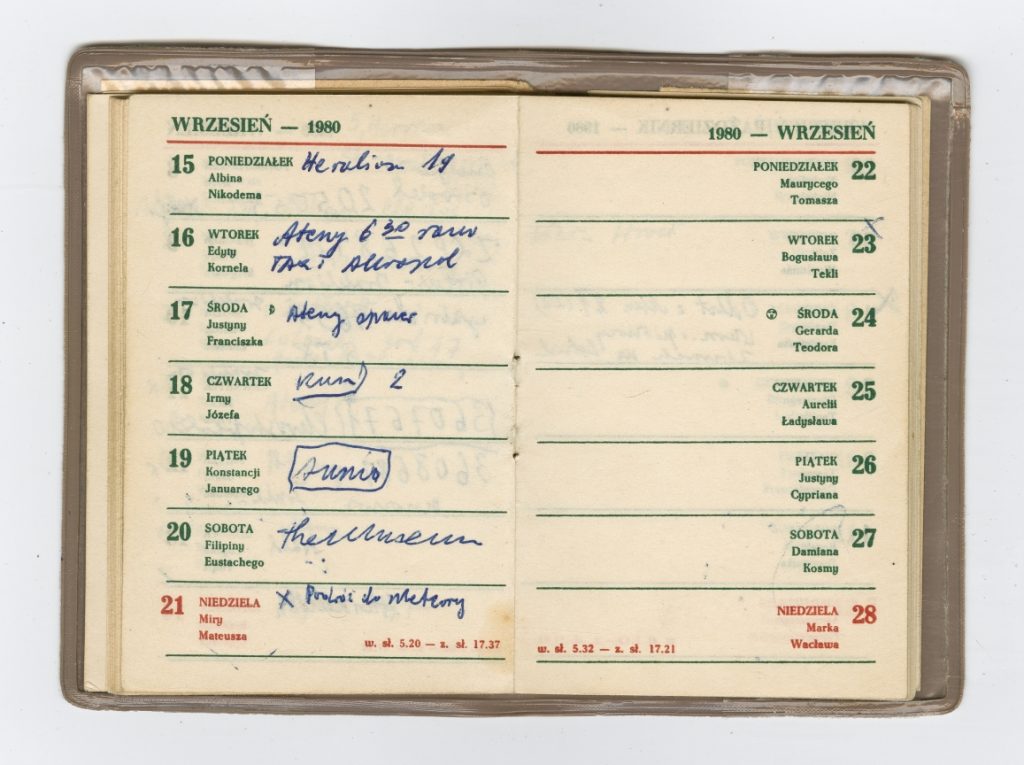 WRZESIEŃ — 1980
15 PONIEDZIAŁEK
Albina
Nikodema
Heraklion 19
16 WTOREK
Edyty
Kornela
Ateny 6 30 rano
TAXI Akropol
17 ŚRODA
Justyny
Franciszka
Ateny spacer
18 CZWARTEK
Irmy
Józefa
2
19 PIĄTEK
Konstancji
Januarego
20 SOBOTA
Filipiny
Eustachego
the Museum
21 NIEDZIELA
Miry
Mateusza
X Podróż do Meteory
w. sł. 5.20 — z. sł. 17.37
1980 — WRZESIEŃ
PONIEDZIAŁEK 22
Maurycego
Tomasza
WTOREK 23 X
Bogusława
Tekli
ŚRODA 24
Gerarda
Teodora
CZWARTEK 25
Aurelii
Ładysława
PIĄTEK 26
Justyny
Cypriana
SOBOTA 27
Damiana
Kosmy
NIEDZIELA 28
Marka
Wacława
w. sł. 5.32 — z. sł. 17.21